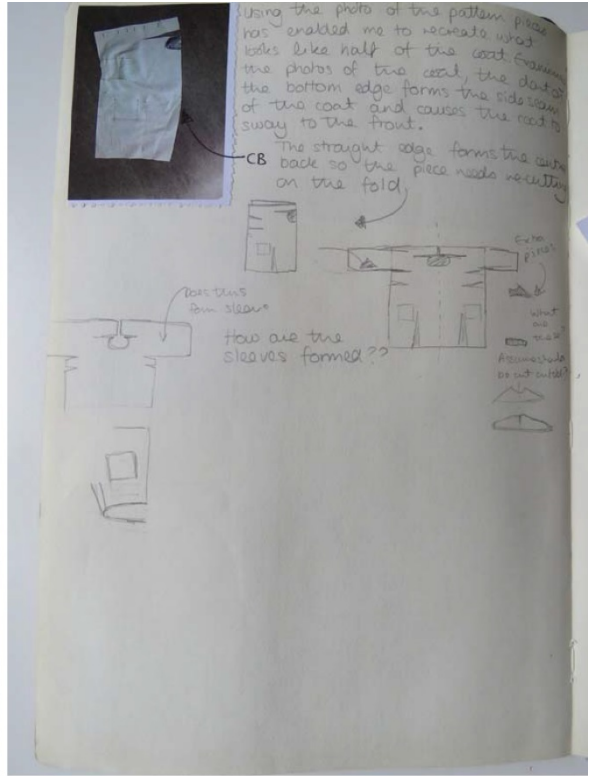 Using the photo of the pattern piece
has enabled me to recreate what
looks like half of the coat. Examining
the photos of the coat, the dart at
the bottom edge forms the side seam
of the coat and causes the coat to
sway to the front.
CB
The straight edge forms the centre
back so the piece needs re-cutting
on the fold.
Extra
pieces
What
are
these?
Does this
form sleeve
How are the
sleeves formed??